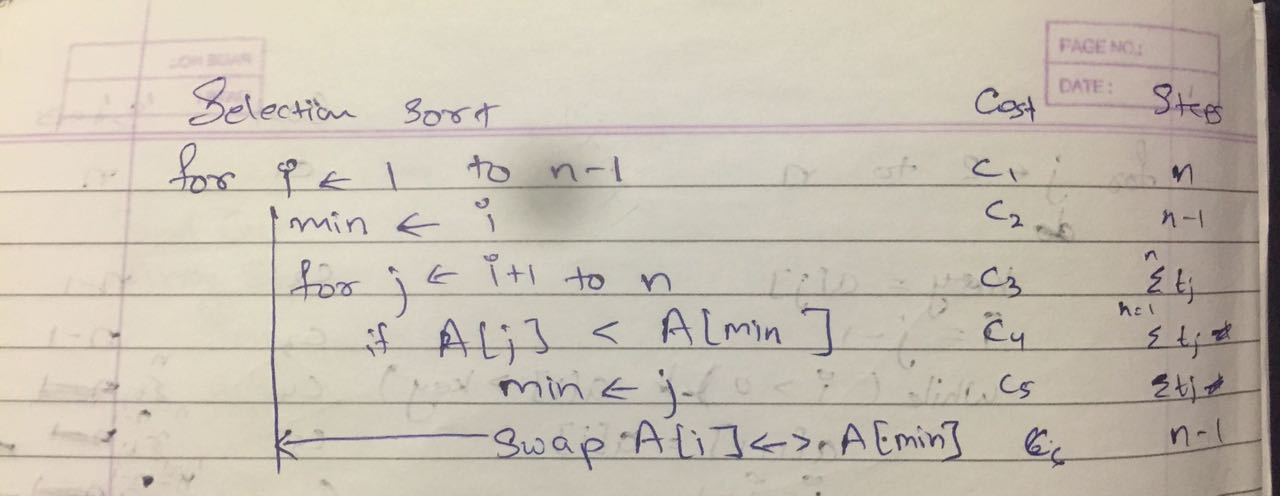 PAGE NO.:
DATE:
Selection sort Cost Steps
for i ← 1 to n-1 C1 n
min ← i C2 n-1
for j ← i+1 to n C3 n Σ tj n=1
if A[j] < A[min] C4 Σ tj
min ← j C5 Σ tj
Swap A[i] <-> A[min] C6 n-1